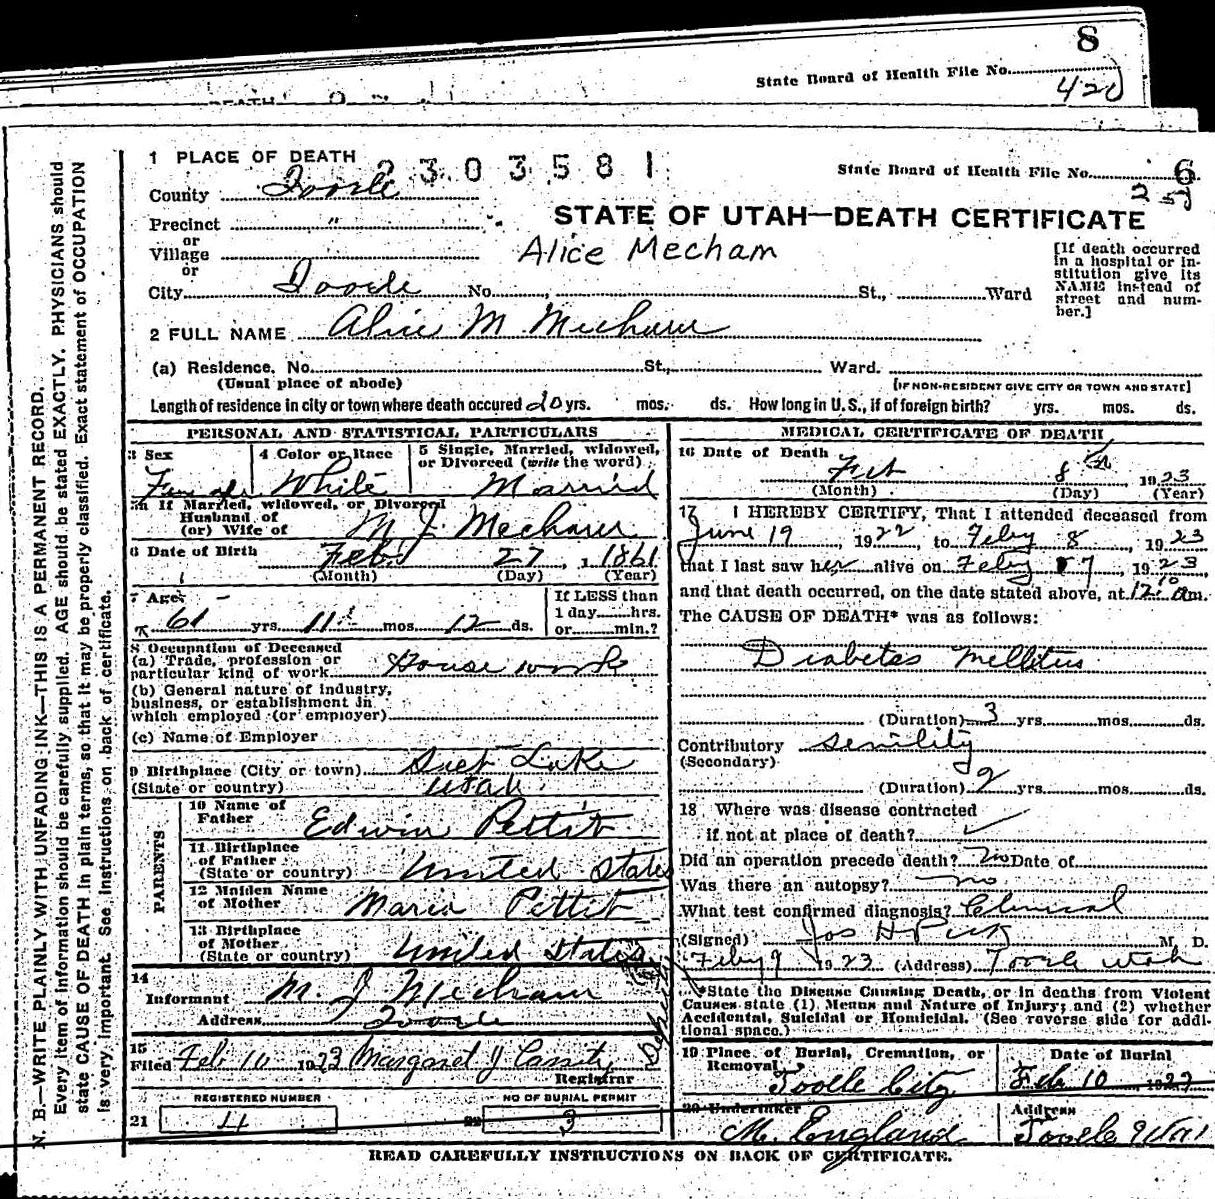 8
State Board of Health File No.
420
1 PLACE OF DEATH
2303581
State Board of Health File No. 6
25
County Tooele
STATE OF UTAH—DEATH CERTIFICATE
Precinct "
or
Village
or
Alice Mecham
[If death occurred in a hospital or institution give its NAME instead of street and number.]
City Tooele No. St., Ward
2 FULL NAME Alice M Mecham
(a) Residence. No. St., Ward.
(Usual place of abode)
[IF NON-RESIDENT GIVE CITY OR TOWN AND STATE]
Length of residence in city or town where death occured 20 yrs. mos. ds. How long in U.S., if of foreign birth? yrs. mos. ds.
N. B.—WRITE PLAINLY WITH UNFADING INK—THIS IS A PERMANENT RECORD.
Every item of information should be carefully supplied. AGE should be stated EXACTLY. PHYSICIANS should
state CAUSE OF DEATH in plain terms, so that it may be properly classified. Exact statement of OCCUPATION
is very important. See instructions on back of certificate.
PERSONAL AND STATISTICAL PARTICULARS
3 Sex
Female
4 Color or Race
White
5 Single, Married, widowed, or Divorced (write the word)
Married
5a If Married, widowed, or Divorced
Husband of
(or) Wife of M J Mecham
6 Date of Birth Feb. 27, 1861
(Month) (Day) (Year)
7 Age
61 yrs. 11 mos. 12 ds.
If LESS than
1 day hrs.
or min.?
8 Occupation of Deceased
(a) Trade, profession or
particular kind of work House work
(b) General nature of industry,
business, or establishment in
which employed (or employer)
(c) Name of Employer
9 Birthplace (City or town) Salt Lake
(State or country) Utah
PARENTS
10 Name of
Father Edwin Pettit
11 Birthplace
of Father
(State or country) United States
12 Maiden Name
of Mother Maria Pettit
13 Birthplace
of Mother
(State or country) United States
14
Informant M. J Mecham
Address Tooele
15
Filed Feb 10 1923 Margaret J
Registrar
REGISTERED NUMBER
21 4
NO OF BURIAL PERMIT
22 3
MEDICAL CERTIFICATE OF DEATH
16 Date of Death Feb 8th 1923
(Month) (Day) (Year)
17 I HEREBY CERTIFY, That I attended deceased from
June 19, 1922, to Feby 8, 1923
that I last saw her alive on Feby 7, 1923,
and that death occurred, on the date stated above, at 12:10 am.
The CAUSE OF DEATH* was as follows:
Diabetes Mellitus
(Duration) 3 yrs. mos. ds.
Contributory Senility
(Secondary)
(Duration) 2 yrs. mos. ds.
18 Where was disease contracted
if not at place of death?
Did an operation precede death? No Date of
Was there an autopsy? no
What test confirmed diagnosis? Clinical
(Signed) Jos H Peck M. D.
Feby 9 1923 (Address) Tooele Utah
*State the Disease Causing Death, or in deaths from Violent
Causes state (1) Means and Nature of Injury; and (2) whether
Accidental, Suicidal or Homicidal. (See reverse side for addi-
tional space.)
19 Place of Burial, Cremation, or
Removal
Tooele City
Date of Burial
Feb 10 1923
20 Undertaker
M. England
Address
Tooele Utah
READ CAREFULLY INSTRUCTIONS ON BACK OF CERTIFICATE.